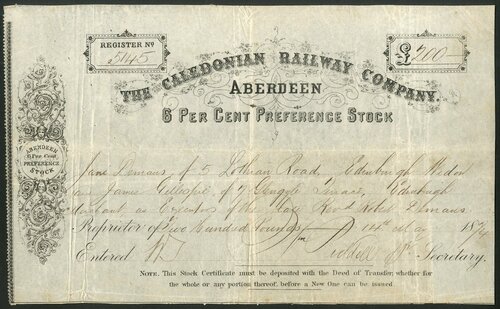 REGISTER Nº
5145
£200
THE CALEDONIAN RAILWAY COMPANY.
ABERDEEN
6 PER CENT PREFERENCE STOCK
ABERDEEN
6 Per Cent
PREFERENCE
STOCK
Jane Demaus, of 5 Lothian Road, Edinburgh
James Gillespie of 7 Terrace, Edinburgh
as Executors of the Robert Demaus
Proprietor of Two Hundred Pounds 14th May 1874
Entered Secretary.
NOTE. This Stock Certificate must be deposited with the Deed of Transfer, whether for
the whole or any portion thereof, before a New One can be issued